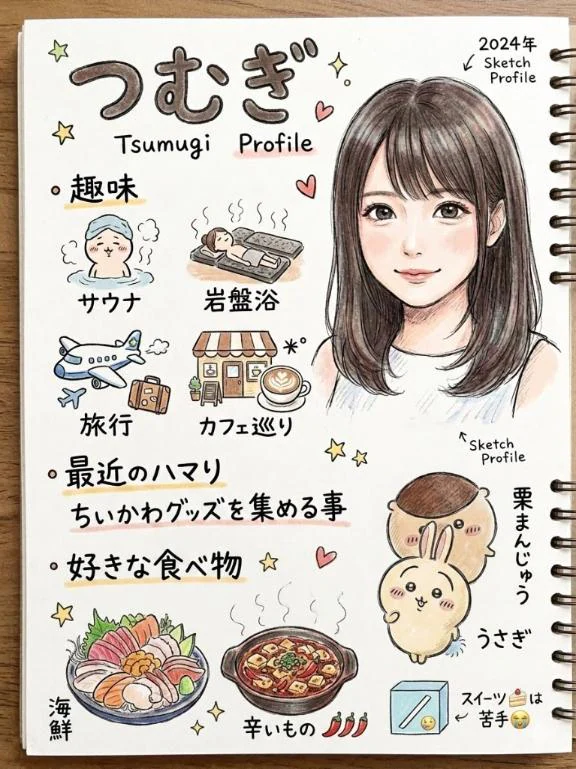 つむぎ
Tsumugi Profile
2024年
Sketch
Profile
・趣味
サウナ
岩盤浴
旅行
カフェ巡り
Sketch
Profile
・最近のハマり
ちいかわグッズを集める事
栗まんじゅう
うさぎ
・好きな食べ物
海鮮
辛いもの🌶🌶🌶
スイーツ🍰は
苦手😭